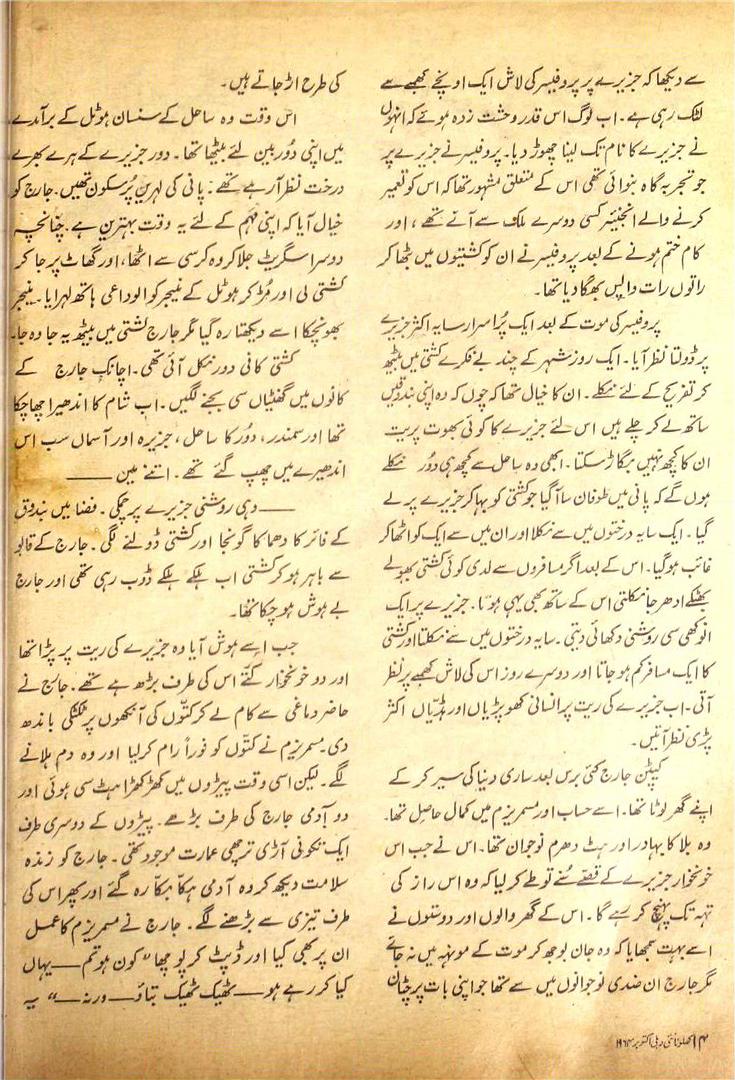 سے دیکھا کہ جزیرے پر پروفیسر کی لاش ایک اونچے کھمبے سے
لٹک رہی ہے۔ اب لوگ اس قدر وحشت زدہ ہوئے کہ انہوں
نے جزیرے کا نام تک لینا چھوڑ دیا۔ پروفیسر نے جزیرے پر
جو تجربہ گاہ بنوائی تھی اس کے متعلق مشہور تھا کہ اس کو تعمیر
کرنے والے انجنیئر کسی دوسرے ملک سے آئے تھے، اور
کام ختم ہونے کے بعد پروفیسر نے ان کو کشتیوں میں بٹھا کر
راتوں رات واپس بھگا دیا تھا۔
پروفیسر کی موت کے بعد ایک پُراسرار سایہ اکثر جزیرے
پر ڈولتا نظر آیا۔ ایک روز شہر کے چند بے فکرے کشتی میں بیٹھ
کر تفریح کے لئے نکلے۔ ان کا خیال تھا کہ چوں کہ وہ اپنی بندوقیں
ساتھ لے کر چلے ہیں اس لئے جزیرے کا کوئی بھوت پریت
ان کا کچھ نہیں بگاڑ سکتا۔ ابھی وہ ساحل سے کچھ ہی دور نکلے
ہوں گے کہ پانی میں طوفان سا آگیا جو کشتی کو بہا کر جزیرے پر لے
گیا۔ ایک سایہ درختوں میں سے نکلا اور ان میں سے ایک کو اٹھا کر
غائب ہوگیا۔ اس کے بعد اگر مسافروں سے لدی کوئی کشتی بھولے
بھٹکے ادھر جا نکلتی اس کے ساتھ بھی یہی ہوتا۔ جزیرے پر ایک
انوکھی سی روشنی دکھائی دیتی۔ سایہ درختوں میں سے نکلتا اور کشتی
کا ایک مسافر گم ہو جاتا اور دوسرے روز اس کی لاش کھمبے پر نظر
آتی۔ اب جزیرے کی ریت پر انسانی کھوپڑیاں اور ہڈیاں اکثر
پڑی نظر آتیں۔
کیپٹن جارج کئی برس بعد ساری دنیا کی سیر کر کے
اپنے گھر لوٹا تھا۔ اسے حساب اور مسمریزم میں کمال حاصل تھا۔
وہ بلا کا بہادر اور ہٹ دھرم نوجوان تھا۔ اس نے جب اس
خونخوار جزیرے کے قصّے سُنے تو طے کرلیا کہ وہ اس راز کی
تہہ تک پہنچ کر رہے گا۔ اس کے گھر والوں اور دوستوں نے
اسے بہت سمجھایا کہ وہ جان بوجھ کر موت کے مونہہ میں نہ جائے
مگر جارج ان ضدی نوجوانوں میں سے تھا جو اپنی بات پر چٹان
کی طرح اڑ جاتے ہیں۔
اس وقت وہ ساحل کے سنسان ہوٹل کے برآمدے
میں اپنی دُور بین لئے بیٹھا تھا۔ دور جزیرے کے ہرے بھرے
درخت نظر آرہے تھے۔ پانی کی لہریں پُرسکون تھیں۔ جارج کو
خیال آیا کہ اپنی مہم کے لئے یہ وقت بہترین ہے۔ چنانچہ
دوسرا سگریٹ جلا کر وہ کرسی سے اٹھا، اور گھاٹ پر جا کر
کشتی لی اور مُڑ کر ہوٹل کے منیجر کو الوداعی ہاتھ لہرایا۔ منیجر
بھونچکا اسے دیکھتا رہ گیا مگر جارج کشتی میں بیٹھ یہ جا وہ جا۔
کشتی کافی دور نکل آئی تھی۔ اچانک جارج کے
کانوں میں گھنٹیاں سی بجنے لگیں۔ اب شام کا اندھیرا چھا چکا
تھا اور سمندر، دُور کا ساحل، جزیرہ اور آسماں سب اس
اندھیرے میں چھپ گئے تھے۔ اتنے میں ——
—— وہی روشنی جزیرے پر چمکی۔ فضا میں بندوق
کے فائر کا دھماکا گونجا اور کشتی ڈولنے لگی۔ جارج کے قابو
سے باہر ہو کر کشتی اب ہلکے ہلکے ڈوب رہی تھی اور جارج
بے ہوش ہو چکا تھا۔
جب اسے ہوش آیا وہ جزیرے کی ریت پر پڑا تھا
اور دو خونخوار کتّے اس کی طرف بڑھ رہے تھے۔ جارج نے
حاضر دماغی سے کام لے کر کتّوں کی آنکھوں پر ٹکٹکی باندھ
دی۔ مسمریزم نے کتّوں کو فوراً رام کرلیا اور وہ دم ہلانے
لگے۔ لیکن اسی وقت پیڑوں میں کھڑ کھڑاہٹ سی ہوئی اور
دو آدمی جارج کی طرف بڑھے۔ پیڑوں کے دوسری طرف
ایک تکونی آڑی ترچھی عمارت موجود تھی۔ جارج کو زندہ
سلامت دیکھ کر وہ آدمی ہکّا بکّا رہ گئے اور پھر اس کی
طرف تیزی سے بڑھنے لگے۔ جارج نے مسمریزم کا عمل
ان پر بھی کیا اور ڈپٹ کر پوچھا "کون ہو تم —— یہاں
کیا کر رہے ہو —— ٹھیک ٹھیک بتاؤ —— ورنہ ——" یہ
۱۴ کھلونا نئی دہلی اکتوبر ۱۹۶۴ء